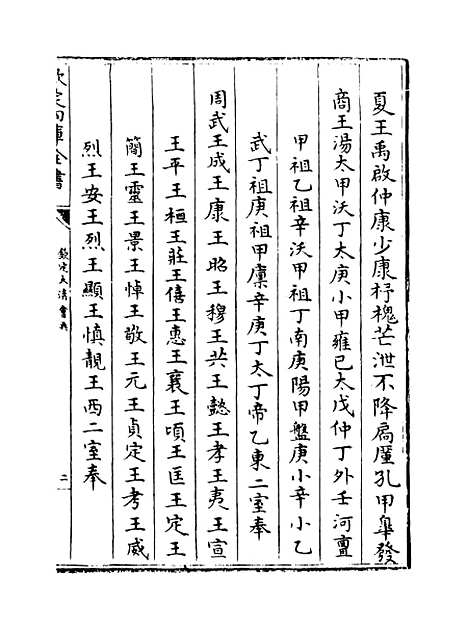 夏王禹啟仲康少康杼槐芒泄不降扃廑孔甲皋發
商王湯太甲沃丁太庚小甲雍己太戊仲丁外壬河亶
甲祖乙祖辛沃甲祖丁南庚陽甲盤庚小辛小乙
武丁祖庚祖甲廩辛庚丁太丁帝乙東二室奉
周武王成王康王昭王穆王共王懿王孝王夷王宣
王平王桓王莊王僖王惠王襄王頃王匡王定王
簡王靈王景王悼王敬王元王貞定王考王威
烈王安王烈王顯王慎靚王西二室奉
欽定四庫全書
欽定大清會典
二